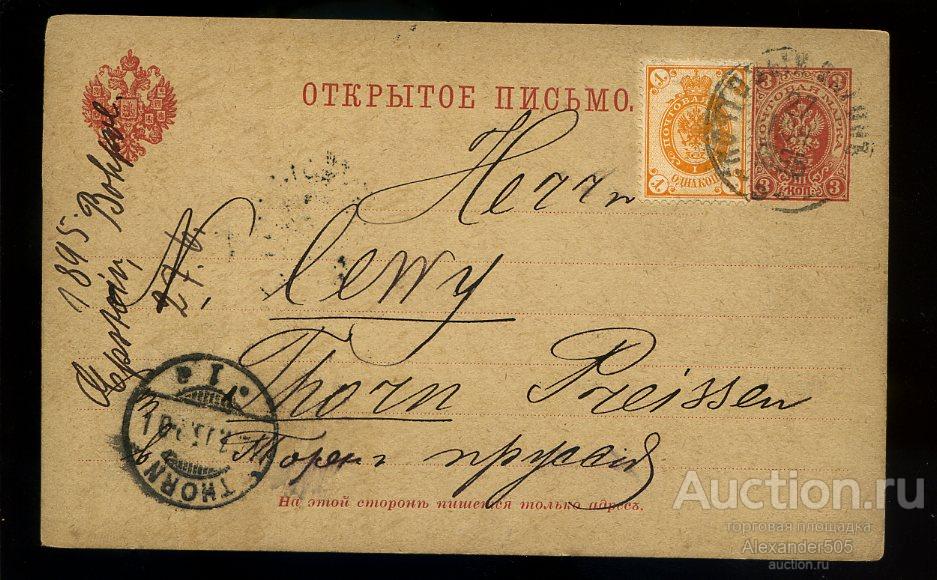 ОТКРЫТОЕ ПИСЬМО.
1
ПОЧТОВАЯ
1 ОДНА КОП. 1
3 3
ПОЧТОВАЯ МАРКА
3 КОП. 3
Herrn
Lewy
Thorn Preissen
Торнъ пруссія
На этой сторонѣ пишется только адресъ.
1895
27.
THORN
Auction.ru
торговая площадка
Alexander505
auction.ru